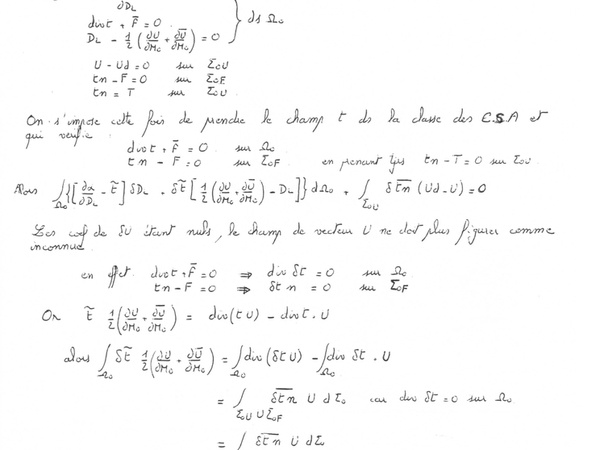 ∂DL
divt + F̄ = 0 } ds Ω₀
DL - 1/2 (∂U/∂M₀ + ∂Ū/∂M₀) = 0
U - Ud = 0 sur Σ₀U
tn - F = 0 sur Σ₀F
tn = T sur Σ₀U
On s'impose cette fois de prendre le champ t ds la classe des C.S.A et
qui verifie
divt + F̄ = 0 sur Ω₀
tn - F = 0 sur Σ₀F en prenant tjs tn - T = 0 sur Σ₀U
Alors ∫Ω₀ {[∂α/∂DL - t̃] δDL + δt̃ [1/2 (∂U/∂M₀ + ∂Ū/∂M₀) - DL]} dΩ₀ + ∫Σ₀U δt̄n̄ (Ud - U) = 0
Les coef de δU étant nuls, le champ de vecteur U ne doit plus figurer comme
inconnue
en effet divt + F̄ = 0 ⇒ div δt = 0 sur Ω₀
tn - F = 0 ⇒ δt n = 0 sur Σ₀F
Or t̃ 1/2 (∂U/∂M₀ + ∂Ū/∂M₀) = div(tU) - divt . U
alors ∫Ω₀ δt̃ 1/2 (∂U/∂M₀ + ∂Ū/∂M₀) = ∫Ω₀ div(δtU) - ∫Ω₀ div δt . U
= ∫Σ₀U∪Σ₀F δt̄n̄ U dΣ₀ car div δt = 0 sur Ω₀
= ∫ δt̄n̄ U dΣ₀